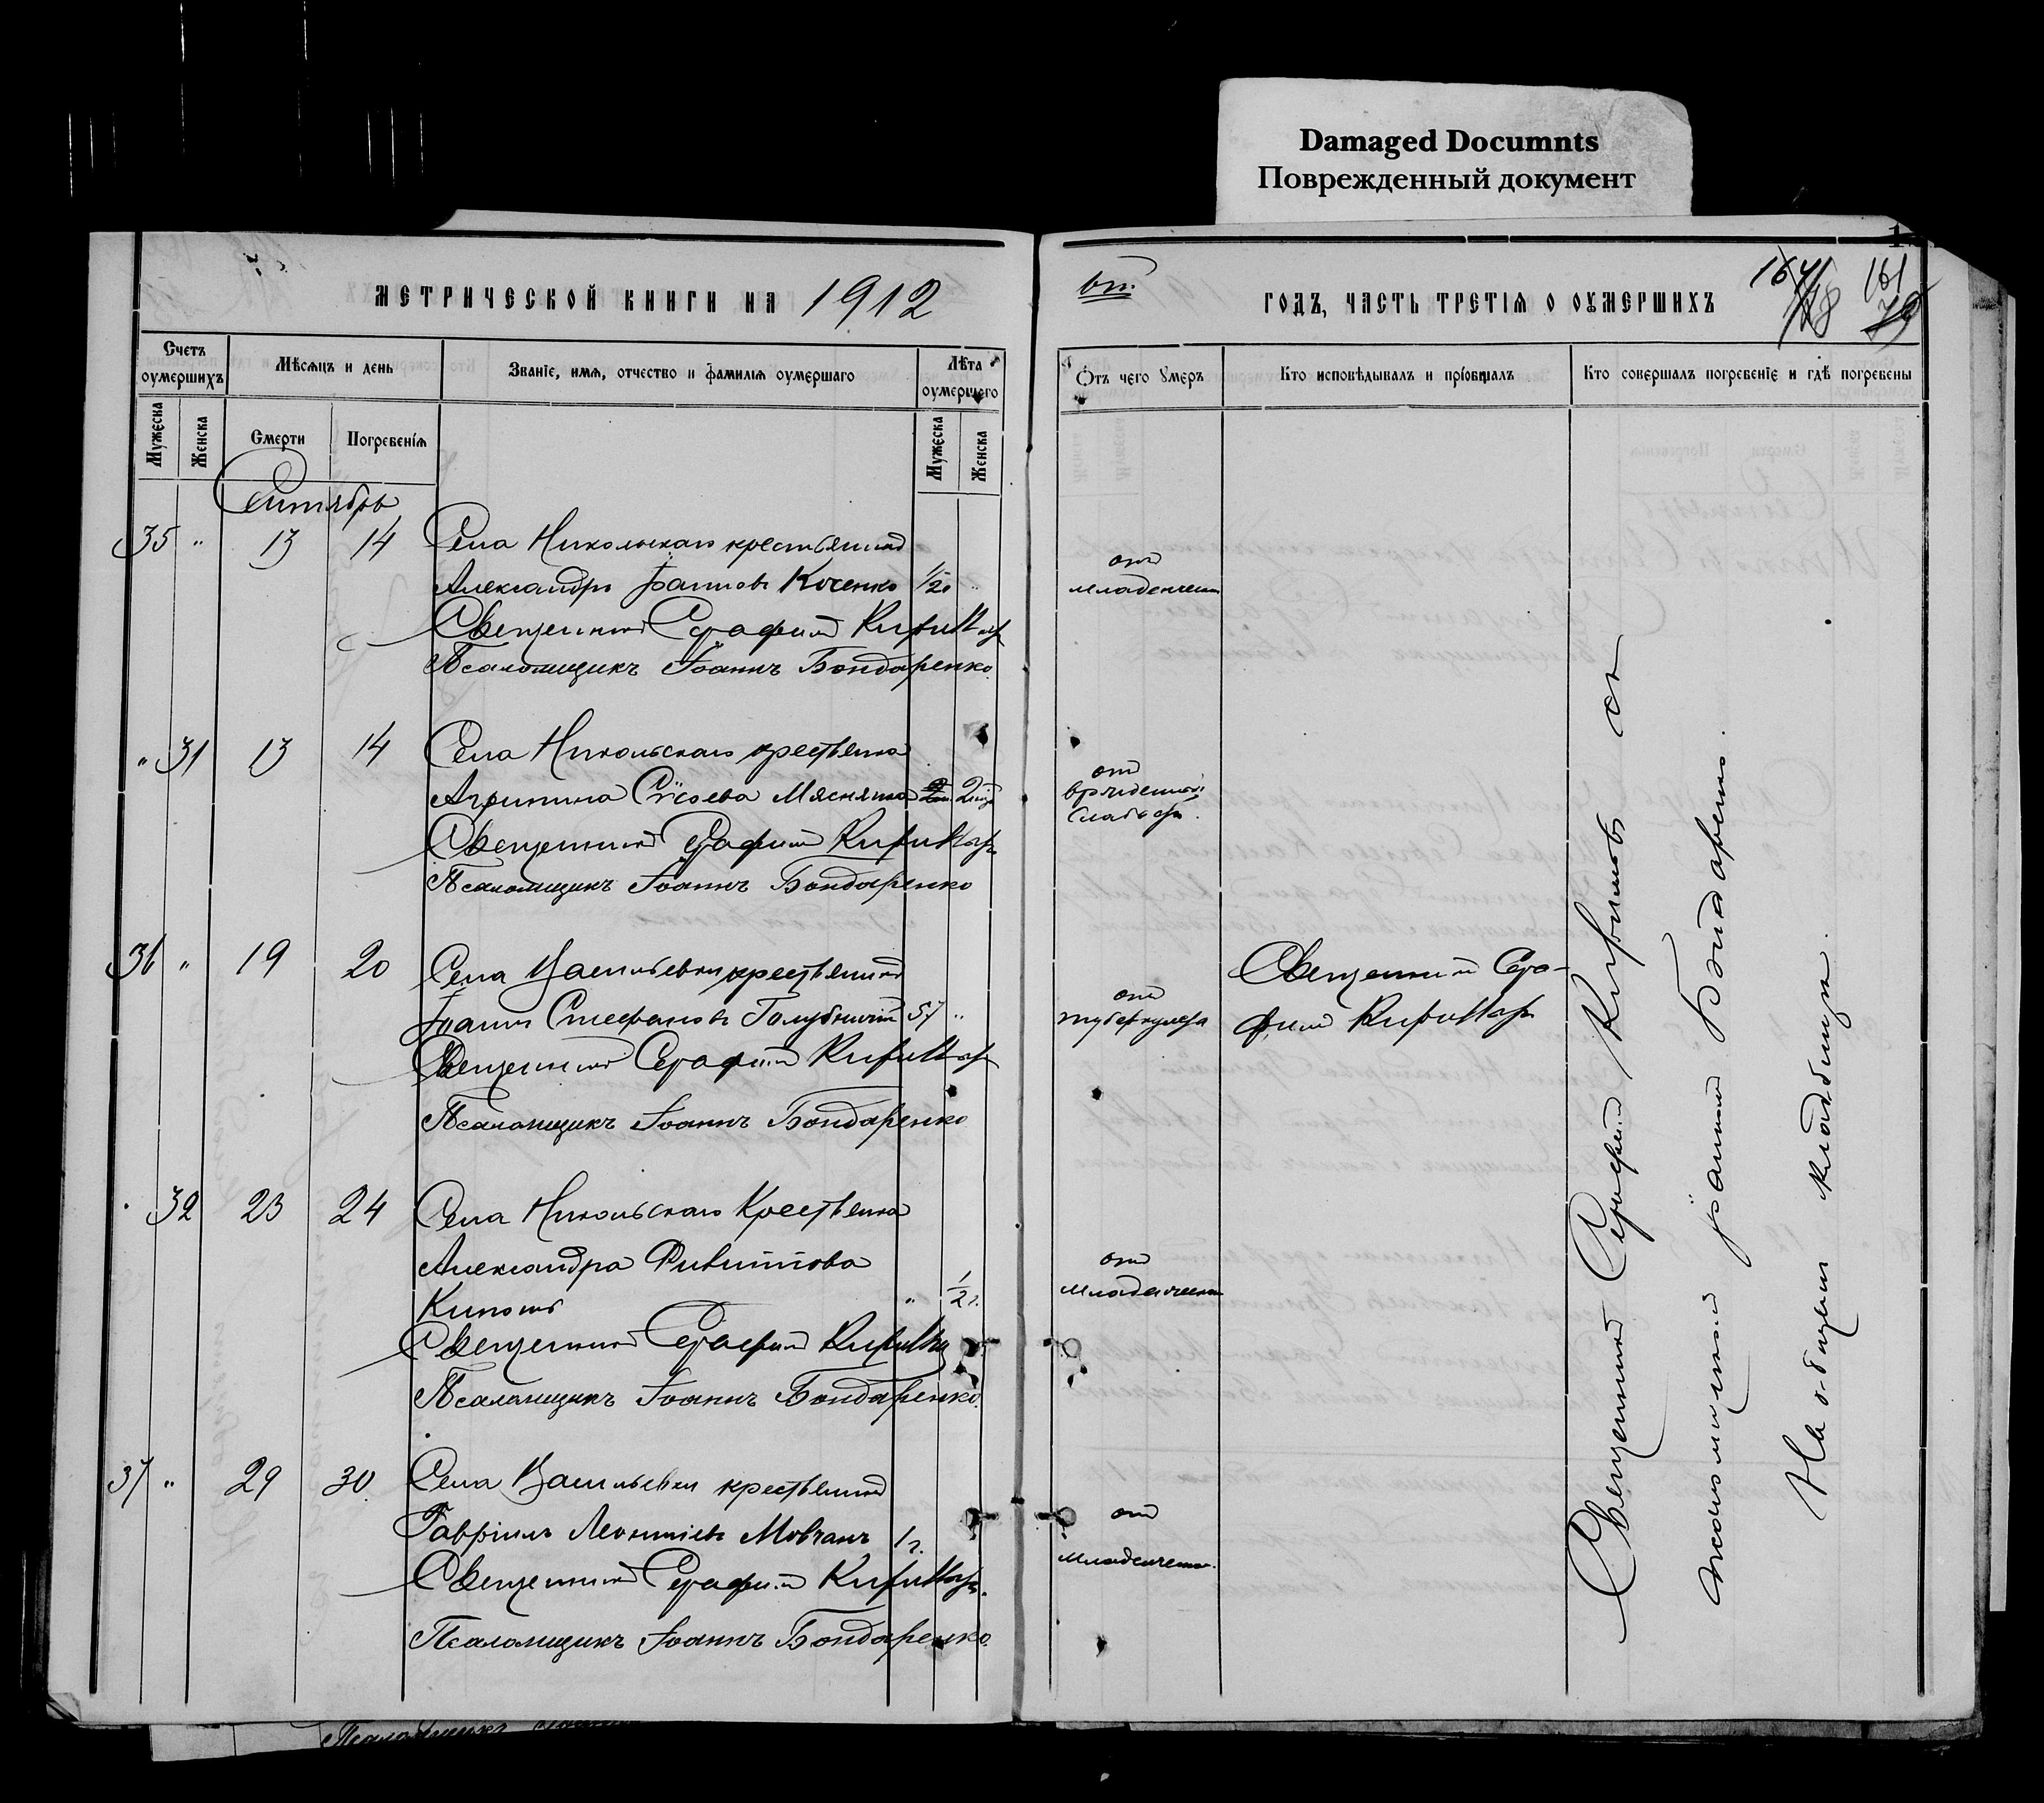 Damaged Documnts
Поврежденный документ
МЕТРИЧЕСКОЙ КНИГИ НА 1912
ГОДЪ, ЧАСТЬ ТРЕТІЯ О ОУМЕРШИХЪ
161
Счетъ оумершихъ
Мѣсяцъ и день
Званіе, имя, отчество и фамилія оумершаго
Лѣта оумершего
Отъ чего умеръ
Кто исповѣдывалъ и пріобщалъ
Кто совершалъ погребеніе и гдѣ погребены
Мужеска
Женска
Смерти
Погребенія
Мужеска
Женска
Сентябрь
35 " 13 14 Села Никольскаго крестьянинъ
Александръ Іоанновъ Коченко 1/2 г
от
младенческ
Священникъ Серафимъ
Псаломщикъ Іоаннъ Бондаренко
" 31 13 14 Села Никольскаго крестьянка
Агрипина Сисоева 2
от
врожденной
слабости
Священникъ Серафимъ
Псаломщикъ Іоаннъ Бондаренко
36 " 19 20 Села Васильевки крестьянинъ
Іоаннъ Стефановъ Голубничій 57 "
от
туберкулеза
Священникъ Сера-
фимъ
Священникъ Серафимъ
Псаломщикъ Іоаннъ Бондаренко
32 23 24 Села Никольскаго Крестьянка
Александра
" 1/2 г.
от
младенческ
Священникъ Серафимъ
Псаломщикъ Іоаннъ Бондаренко
37 " 29 30 Села Васильевки крестьянинъ
Гавріилъ Леонтіевъ Мовчанъ 1 г.
от
младенческ
Священникъ Серафимъ
Псаломщикъ Іоаннъ Бондаренко
Священникъ Серафимъ съ
псаломщикомъ Іоанномъ Бондаренко.
На общемъ кладбищѣ.